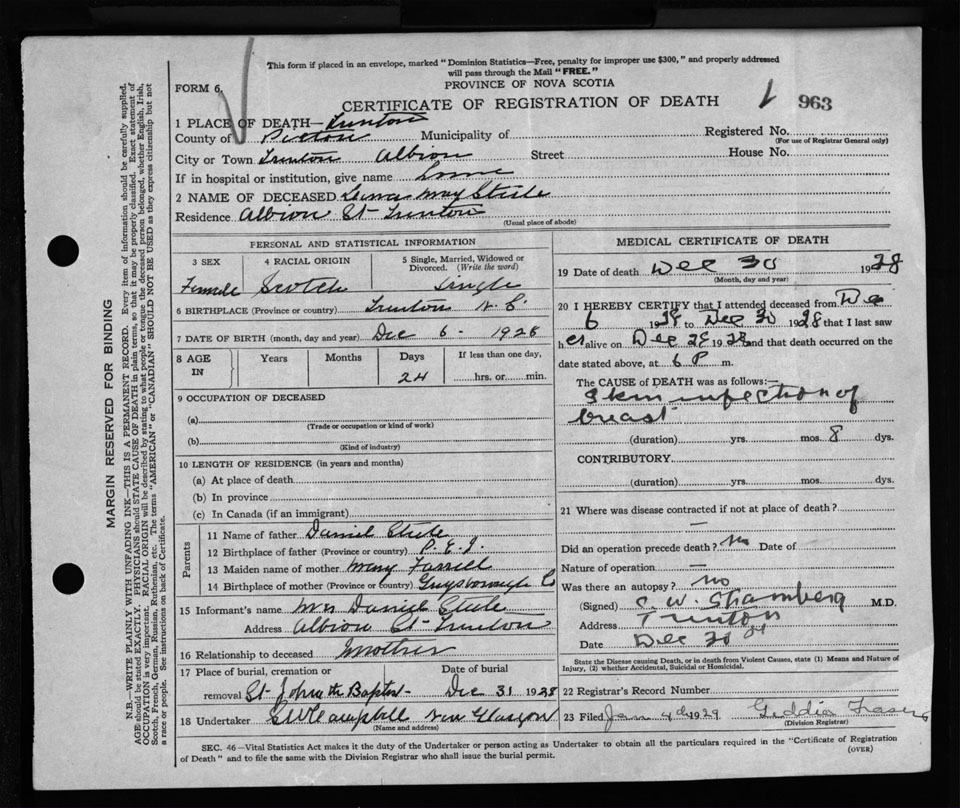 This form if placed in an envelope, marked "Dominion Statistics—Free, penalty for improper use $300," and properly addressed
will pass through the Mail "FREE."
FORM 6.
PROVINCE OF NOVA SCOTIA
CERTIFICATE OF REGISTRATION OF DEATH
963
1 PLACE OF DEATH— Trenton
County of Pictou Municipality of Registered No.
(For use of Registrar General only)
City or Town Trenton Albion Street House No.
If in hospital or institution, give name
2 NAME OF DECEASED May Steele
Residence Albion St Trenton
(Usual place of abode)
PERSONAL AND STATISTICAL INFORMATION
3 SEX 4 RACIAL ORIGIN 5 Single, Married, Widowed or Divorced. (Write the word)
Female Scotch Single
6 BIRTHPLACE (Province or country) Trenton N.S.
7 DATE OF BIRTH (month, day and year) Dec 6 - 1928
8 AGE IN Years Months Days If less than one day,
24 hrs. or min.
9 OCCUPATION OF DECEASED
(a)
(Trade or occupation or kind of work)
(b)
(Kind of industry)
10 LENGTH OF RESIDENCE (in years and months)
(a) At place of death
(b) In province
(c) In Canada (if an immigrant)
Parents
11 Name of father Daniel Steele
12 Birthplace of father (Province or country) P.E.I.
13 Maiden name of mother Mary Farrell
14 Birthplace of mother (Province or country) Guysborough Co
15 Informant's name Mrs Daniel Steele
Address Albion St Trenton
16 Relationship to deceased Mother
17 Place of burial, cremation or Date of burial
removal St John the Baptist Dec 31 1928
18 Undertaker Campbell New Glasgow
(Name and address)
MEDICAL CERTIFICATE OF DEATH
19 Date of death Dec 30 1928
(Month, day and year)
20 I HEREBY CERTIFY that I attended deceased from Dec
6 1928 to Dec 30 1928 that I last saw
her alive on Dec 28 1928 and that death occurred on the
date stated above, at 6 P. m.
The CAUSE of DEATH was as follows:—
Skin infection of
breast
(duration) yrs. mos. 8 dys.
CONTRIBUTORY
(duration) yrs. mos. dys.
21 Where was disease contracted if not at place of death?
—
Did an operation precede death? No Date of
Nature of operation —
Was there an autopsy? No
(Signed) C. W. Stramberg M.D.
Address Trenton
Date Dec 30
State the Disease causing Death, or in death from Violent Causes, state (1) Means and Nature of
Injury, (2) whether Accidental, Suicidal or Homicidal.
22 Registrar's Record Number
23 Filed Jan 4th 1929 Fraser
(Division Registrar)
SEC. 46—Vital Statistics Act makes it the duty of the Undertaker or person acting as Undertaker to obtain all the particulars required in the "Certificate of Registration
of Death" and to file the same with the Division Registrar who shall issue the burial permit.
(OVER)
MARGIN RESERVED FOR BINDING
N.B.—WRITE PLAINLY WITH UNFADING INK—THIS IS A PERMANENT RECORD. Every item of information should be carefully supplied.
AGE should be stated EXACTLY. PHYSICIANS should STATE CAUSE OF DEATH in plain terms, so that it may be properly classified. Exact statement of
OCCUPATION is very important. RACIAL ORIGIN will be described by stating to what people or tongue the deceased person belonged, whether English, Irish,
Scotch, French, German, Russian, Ruthenian, etc. The terms "AMERICAN" or "CANADIAN" SHOULD NOT BE USED as they express citizenship but not
a race or people. See instructions on back of Certificate.